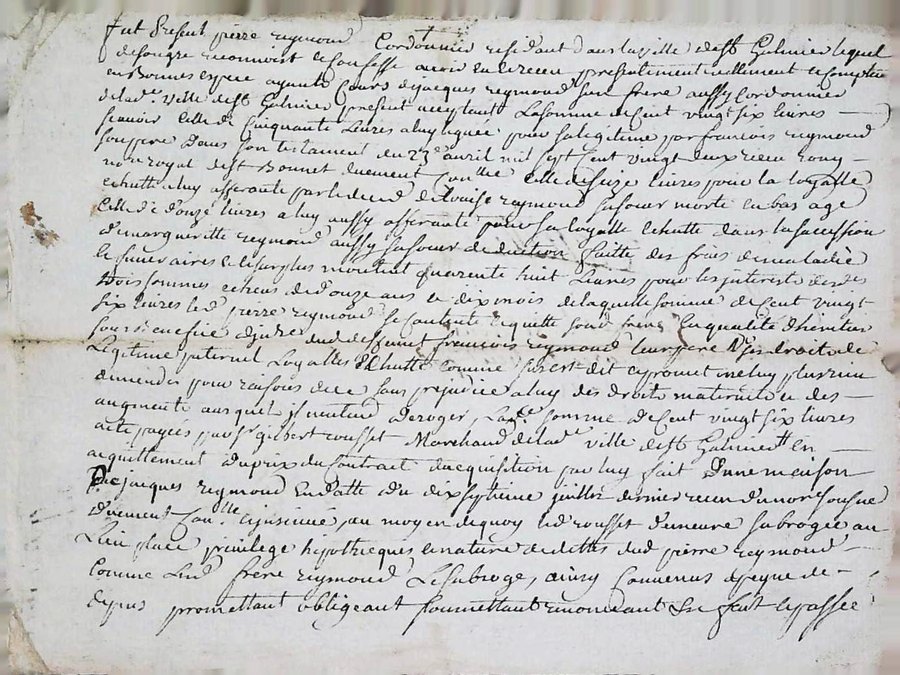 fut présent pierre reymond Cordonnier residant dans la ville de st Galmier lequel
de son gre reconnoist et confesse avoir eu et receu presentement reellement et comptant
en bonnes espece ayants cours de jacques reymond son frere aussy cordonnier
de lad. ville de st Galmier present acceptant La somme de Cent vingt six livres
scavoir celle de Cinquante Livres a luy leguée pour sa legitime par francois reymond
son pere dans son testament du 23e avril mil sept Cent vingt deux receu
nore royal de st Bonnet duement Conllé celle de seize livres pour la loyalle
echutte a luy afferante par le deced de Louise reymond sa soeur morte en bas age
Celle de douze livres a luy aussy afferante pour sa loyalle echutte dans la succession
de margueritte reymond aussy sa soeur deduction faitte des frais de maladie
et funeraires et le surplus montant quarente huit Livres pour les interest desdes
trois sommes echeus de douze ans et dix mois de laquelle somme de Cent vingt
six livres led pierre reymond se contente et quitte sond frere En qualité d'heritier
sous benefice dud deffunt francois reymond leur pere Des droits de
Legitime paternel Loyalles Echutte comme sus est dit et promet ne luy plus rien
demander pour raisons de ce sans prejudice a luy des droits maternels et des
augments ausquels il n'entend deroger, Lade somme de Cent vingt six livres
a eté payées par sr gilbert rousset Marchand de lad ville de st Galmier en
acquittement du prix du Contract d'acquisition par luy fait D'une maison
De jacques reymond En datte du dix septieme juillet dernier receu du nore sousne
duement Conllé et insinué, au moyen de quoy led rousset demeure subrogée au
Lieu place privilege hypotheques et nature de dettes dud pierre reymond
Comme Lud frere reymond Le subroge, ainsy Convenus a peyne de
depens promettant obligeant soumettant renonceant &c fait et passée